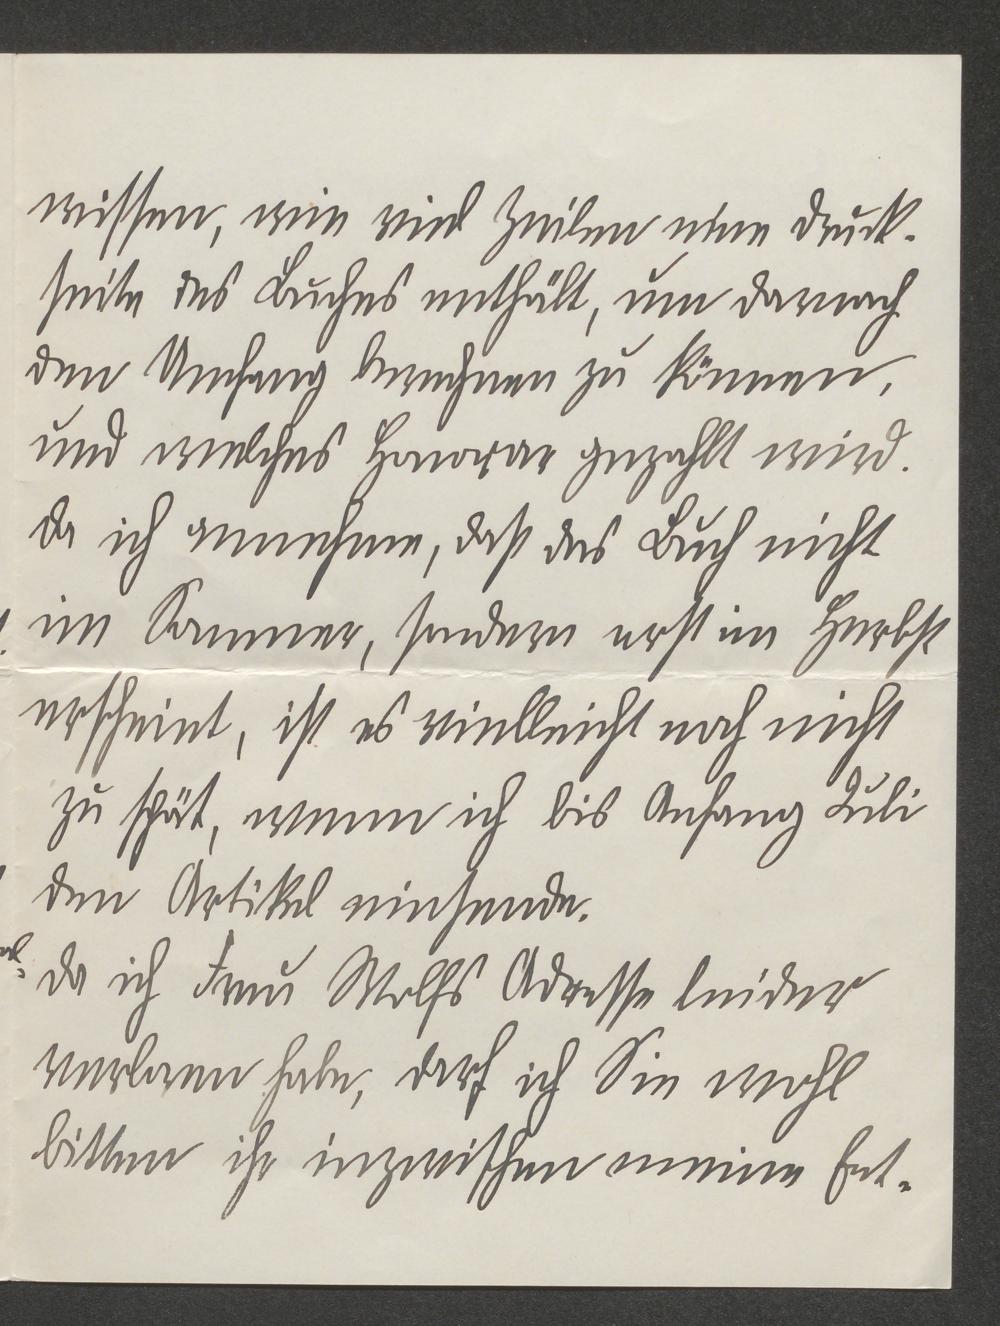 wissen, wie viel Zeilen eine Druck-
seite des Buches enthält, um darnach
den Umfang berechnen zu können,
und welches Honorar gezahlt wird.
Da ich annehme, daß das Buch nicht
im Sommer, sondern erst im Herbst
erscheint, ist es vielleicht noch nicht
zu spät, wenn ich bis Anfang Juli
den Artikel einsende.
Da ich Frau Wolfs Adresse leider
verloren habe, darf ich Sie wohl
bitten ihr inzwischen meine Ent-